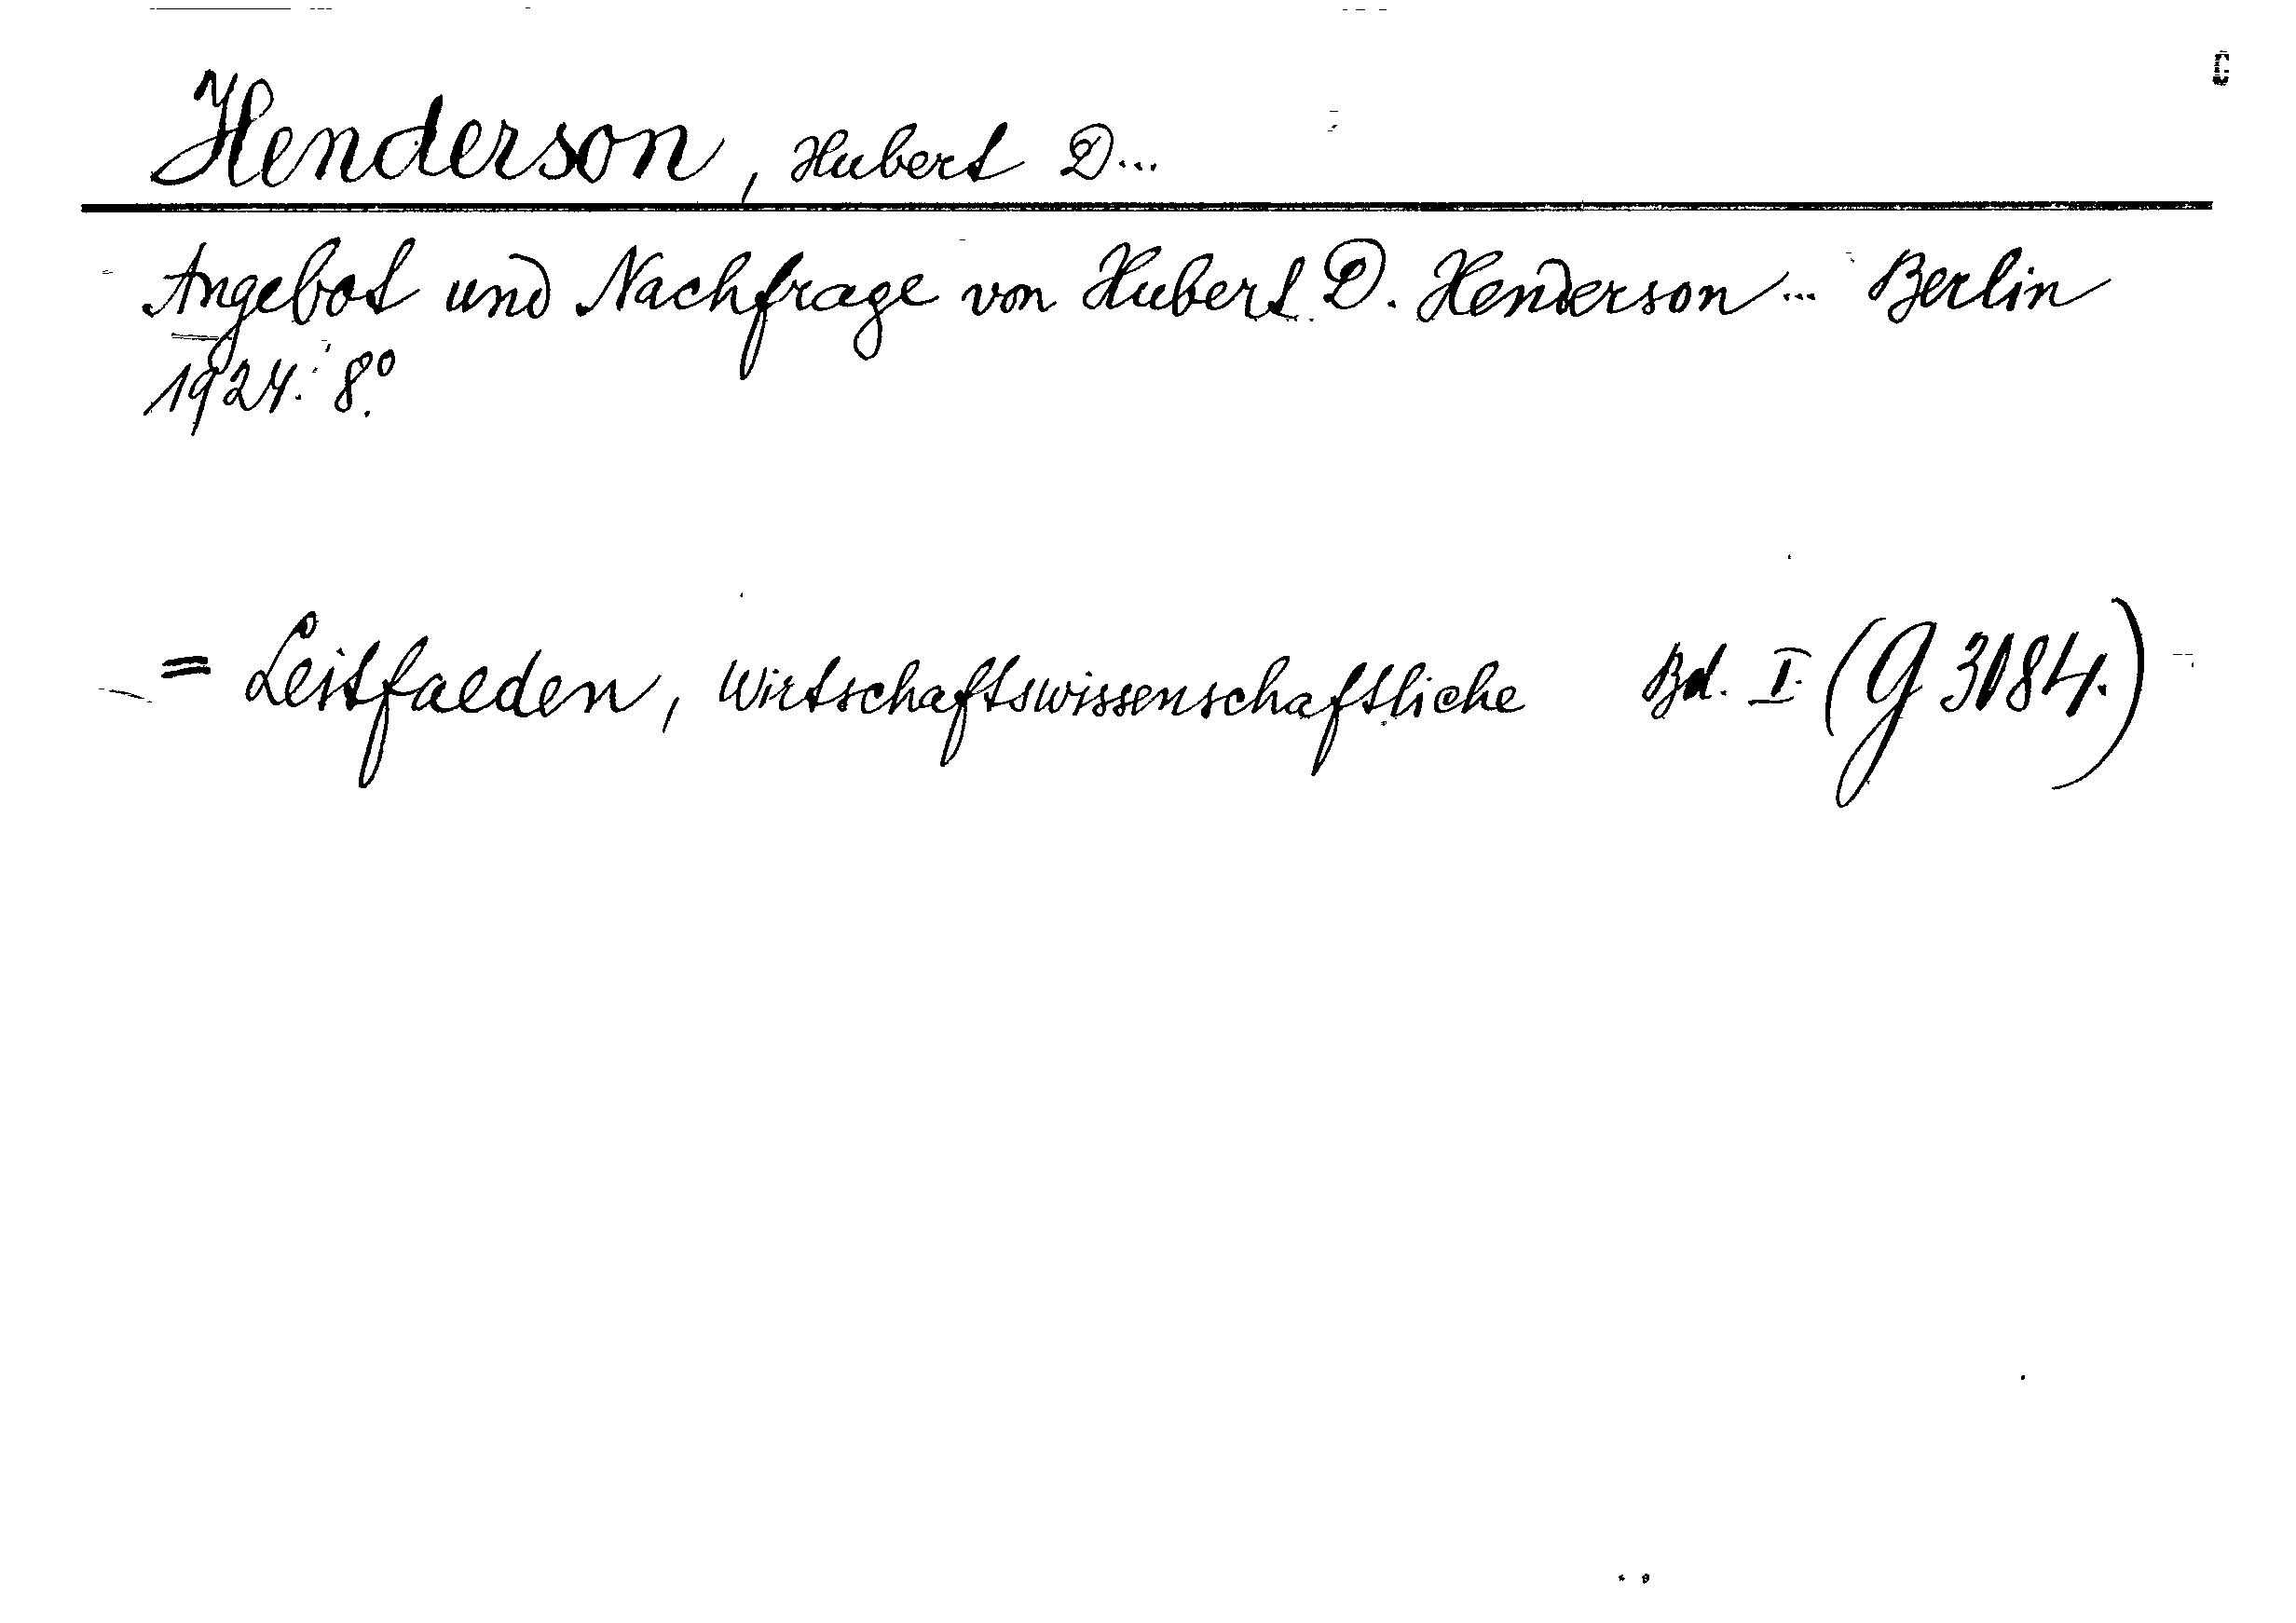 Henderson, Hubert D...
Angebot und Nachfrage von Hubert D. Henderson... Berlin
1924. 8°.
= Leitfaeden, Wirtschaftswissenschaftliche Bd. I. (G 3184.)